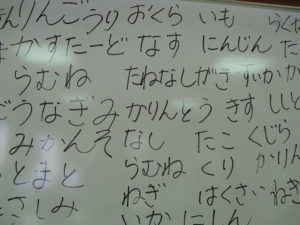 りんごうり おくら いも
かすたーど なす にんじん
らむね たねなしがき すいか
うなぎ みかりんとう きす
みかんそ なし たこ くじら
とまと らむね くり かりん
さしみ ねぎ はくさい ねぎ
いか にしん